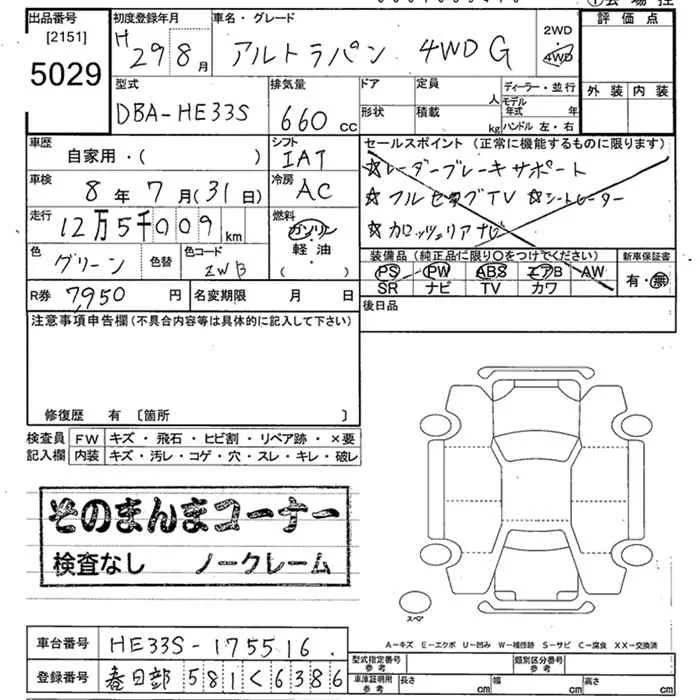 出品番号
[2151]
5029
初度登録年月
H 29 8月
車名・グレード
アルトラパン 4WD G
2WD
4WD
評価点
外装 内装
型式
DBA-HE33S
排気量
660 cc
ドア
形状
定員 人
積載 kg
ディーラー・並行
モデル年式 年
ハンドル 左・右
車歴
自家用・( )
シフト
IAT
セールスポイント (正常に機能するものに限ります)
☆レーダーブレーキサポート
☆フルセグTV ☆シートヒーター
☆カロッツェリアナビ
車検
8年 7月(31日)
冷房
AC
走行
12万5千009 km
燃料
ガソリン
軽油
( )
色
グリーン
色替
色コード
ZWB
装備品 (純正品に限り○をつけてください)
PS PW ABS エアB AW
SR ナビ TV カワ
新車保証書
有・無
R券 7,950 円
名変期限 月 日
後日品
注意事項申告欄 (不具合内容等は具体的に記入して下さい)
修復歴 有 〔箇所 〕
検査員 FW キズ・飛石・ヒビ割・リペア跡・×要
記入欄 内装 キズ・汚レ・コゲ・穴・スレ・キレ・破レ
そのまんまコーナー
検査なし ノークレーム
スペア
A-キズ E-エクボ U-凹み W-補修跡 S-サビ C-腐食 XX-交換済
車台番号 HE33S-175516
登録番号 春日部 581く6386
型式指定番号 参考
類別区分番号 参考
車庫証明用 参考
長さ cm
幅 cm
高さ cm